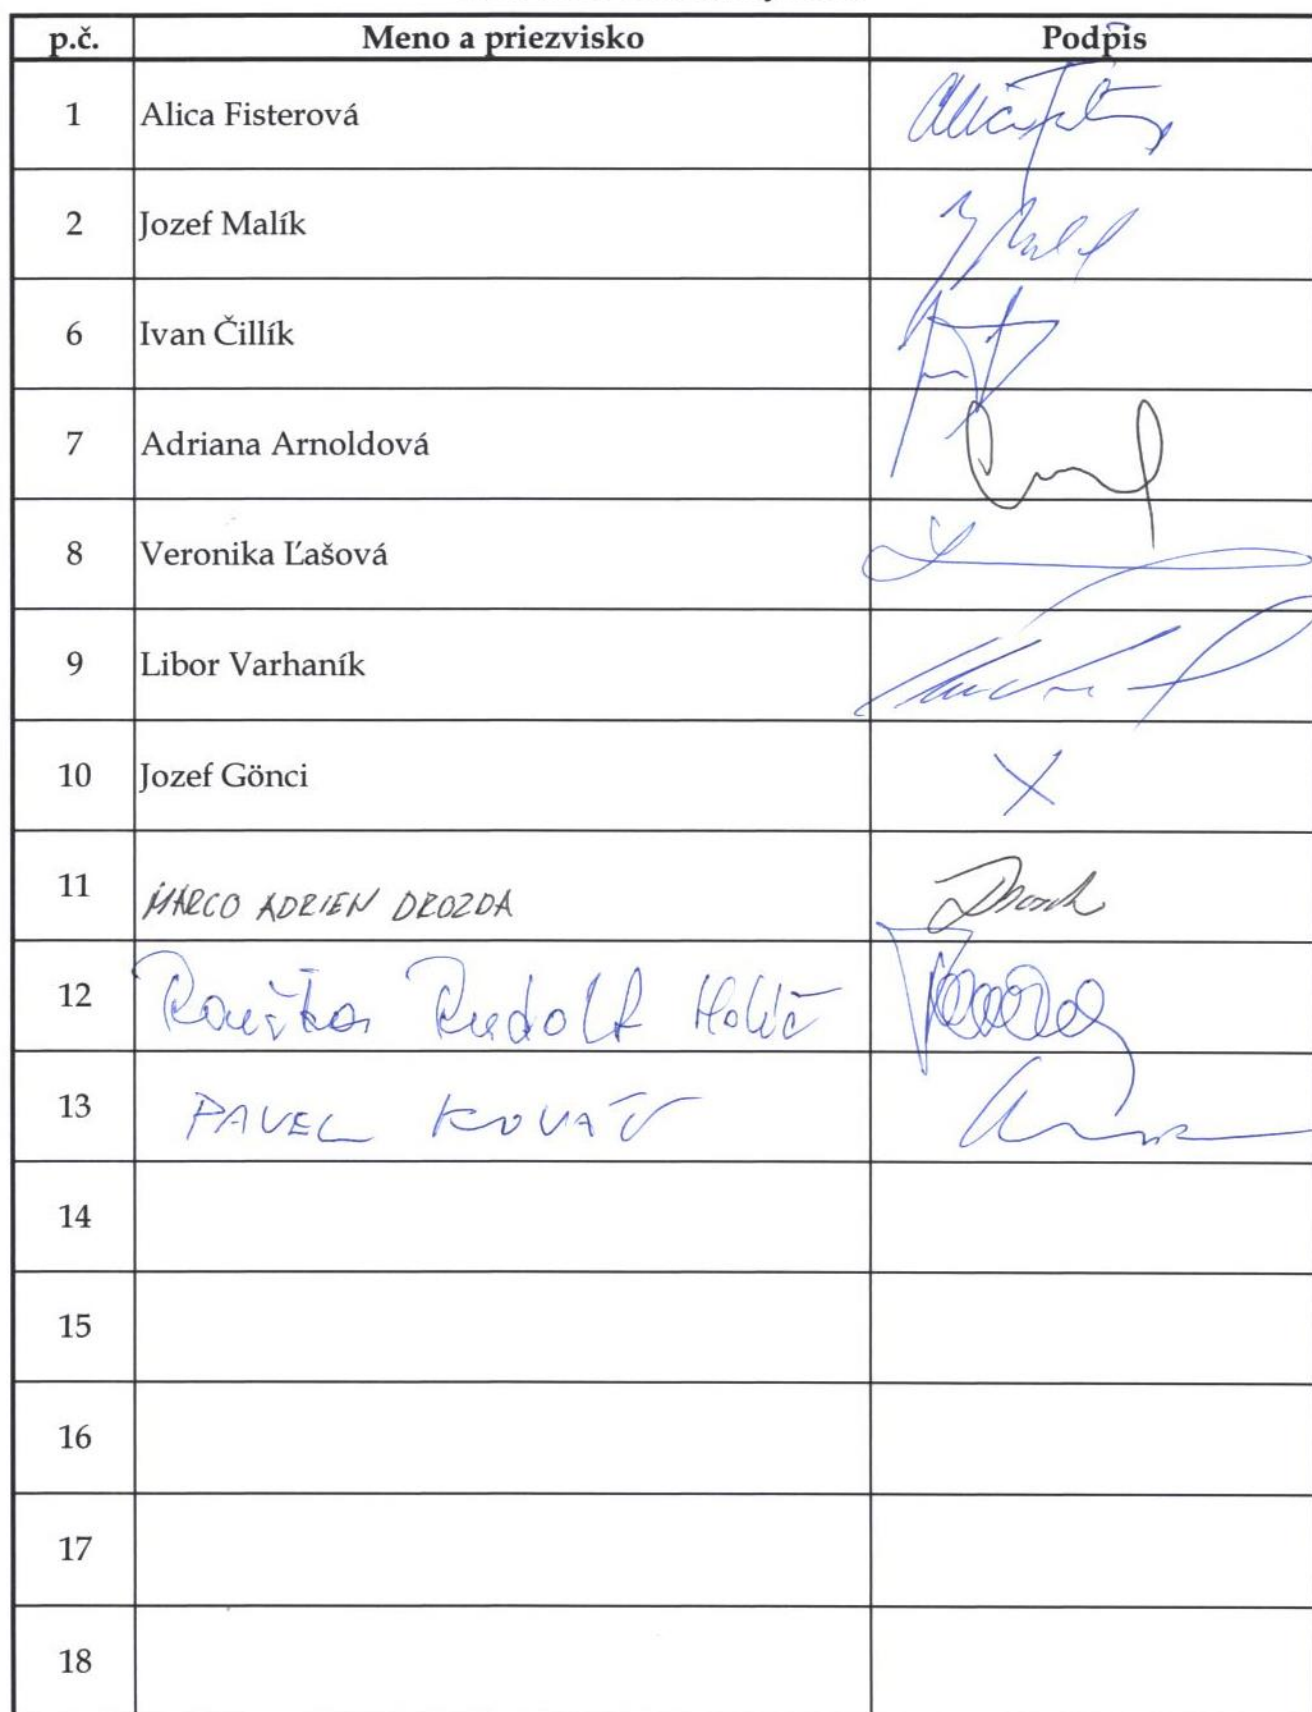 p.č. Meno a priezvisko Podpis
1 Alica Fisterová
2 Jozef Malík
6 Ivan Čillík
7 Adriana Arnoldová
8 Veronika Ľašová
9 Libor Varhaník
10 Jozef Gönci X
11 MARCO ADRIEN DROZDA
12 Rudolf Holíč
13 PAVEL KOVÁŘ
14
15
16
17
18